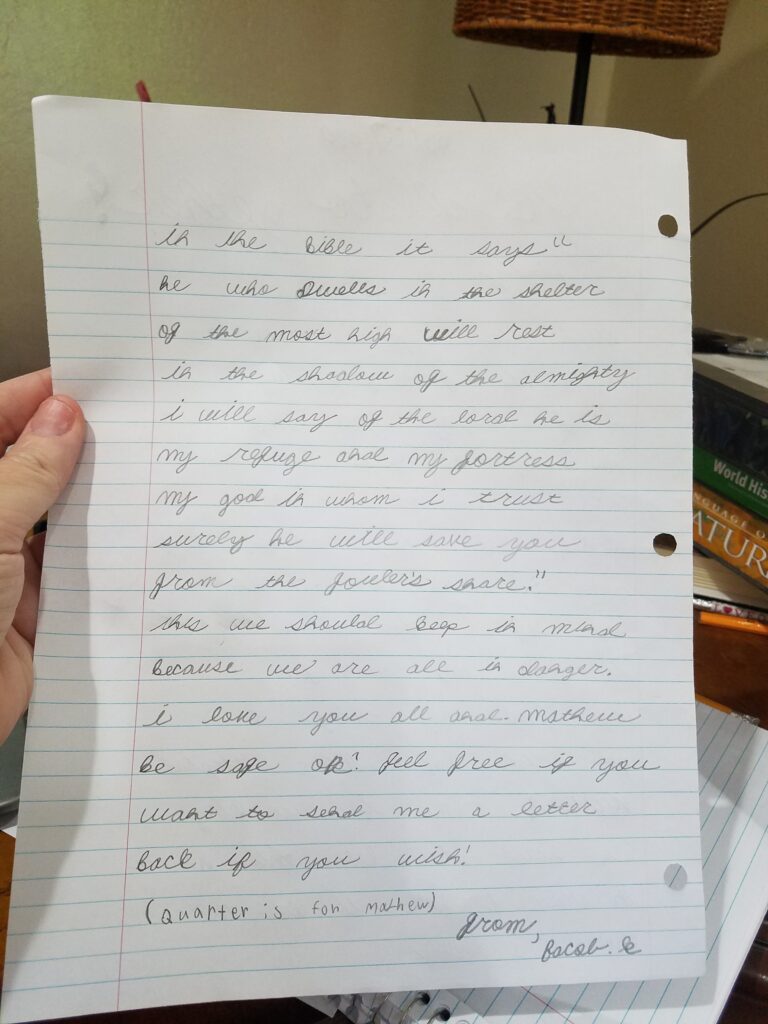 in the Bible it says "
he who dwells in the shelter
of the most high will rest
in the shadow of the almighty
i will say of the lord he is
my refuge and my fortress
my god in whom i trust
surely he will save you
from the fowler's snare."
this we should keep in mind
because we are all in danger.
i love you all and. mathew
be safe ok! feel free if you
want to send me a letter
back if you wish!
(Quarter is for mathew)
from,
World His
NGUAGE O
ATUR